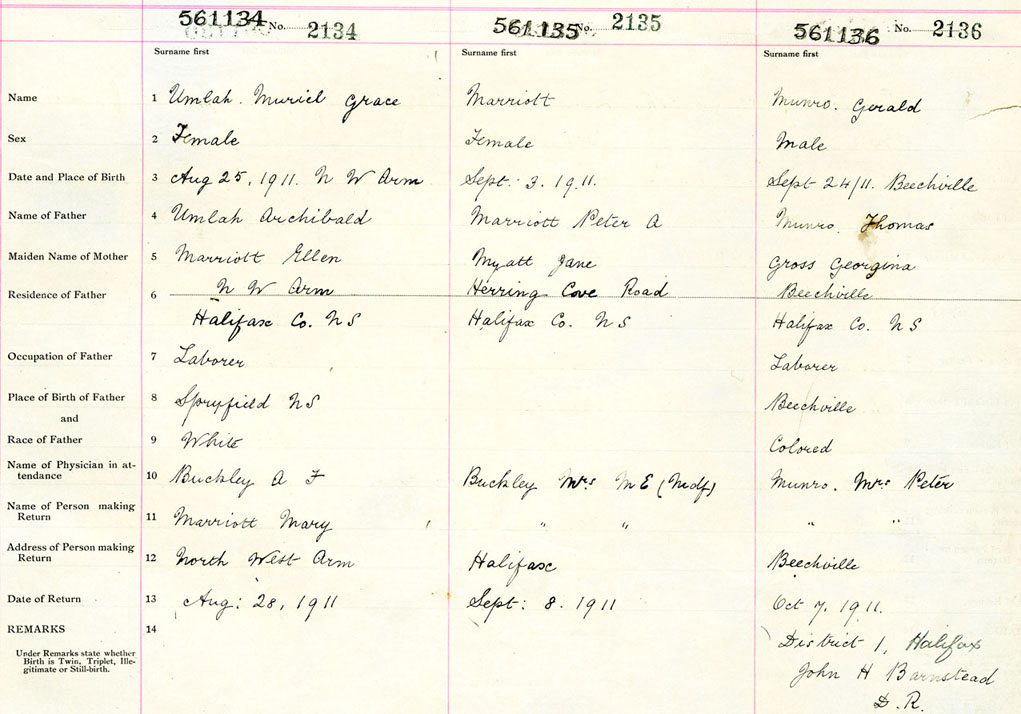 561134 No. 2134 561135 No. 2135 561136 No. 2136
Surname first Surname first Surname first
Name 1 Umlah. Muriel Grace Marriott Munro. Gerald
Sex 2 Female Female Male
Date and Place of Birth 3 Aug 25, 1911. N W Arm Sept. 3. 1911. Sept 24/11. Beechville
Name of Father 4 Umlah Archibald Marriott Peter A Munro. Thomas
Maiden Name of Mother 5 Marriott Ellen Myatt Jane Gross Georgina
Residence of Father 6 N W Arm Herring Cove Road Beechville
Halifax Co. N S Halifax Co. N S Halifax Co. N S
Occupation of Father 7 Laborer Laborer
Place of Birth of Father 8 Spryfield N S Beechville
and
Race of Father 9 White Colored
Name of Physician in at-
tendance 10 Buckley A F Buckley Mrs M E (Mdf) Munro. Mrs Peter
Name of Person making
Return 11 Marriott Mary " " " "
Address of Person making
Return 12 North West Arm Halifax Beechville
Date of Return 13 Aug: 28, 1911 Sept: 8. 1911 Oct 7, 1911.
REMARKS 14
Under Remarks state whether
Birth is Twin, Triplet, Ille-
gitimate or Still-birth.
District 1, Halifax
John H Barnstead
D. R.